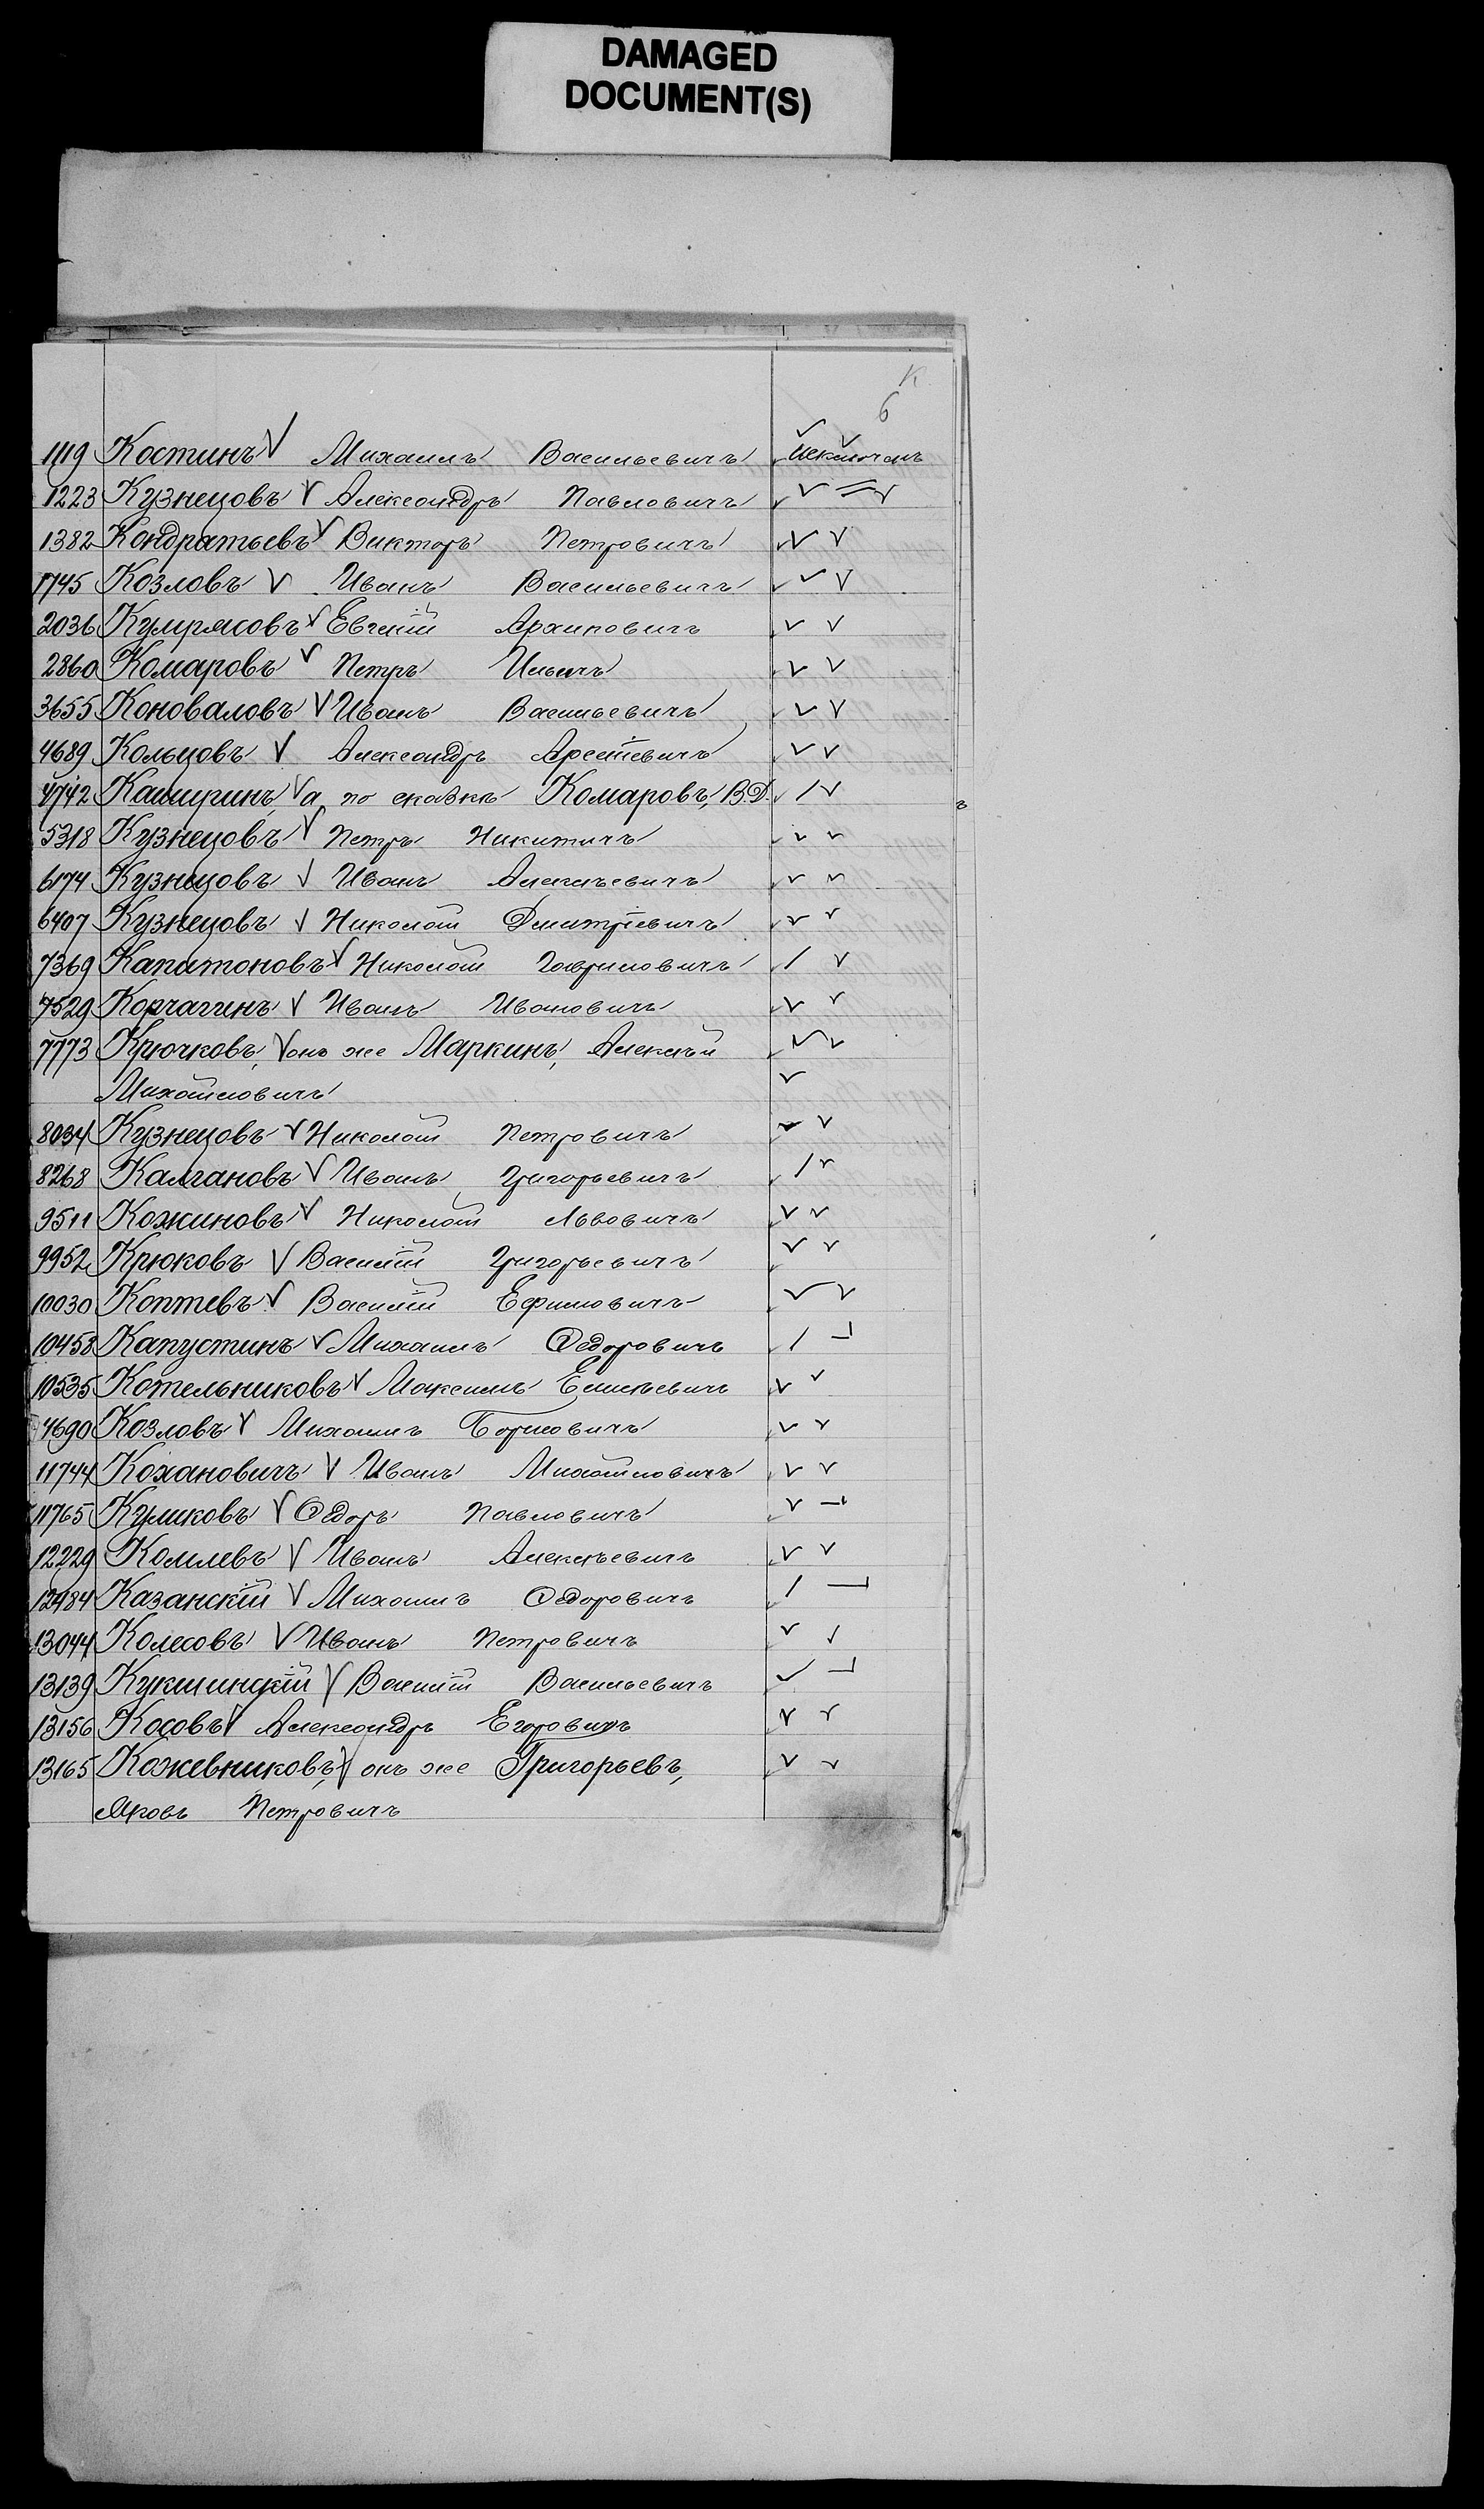 DAMAGED
DOCUMENT(S)
К.
6
1119 Костинъ Михаилъ Васильевичъ исключенъ
1223 Кузнецовъ Александръ Павловичъ
1382 Кондратьевъ Викторъ Петровичъ
1745 Козловъ Иванъ Васильевичъ
2036 Евгеній Архиповичъ
2860 Комаровъ Петръ Ильичъ
3655 Коноваловъ Иванъ Васильевичъ
4689 Кольцовъ Александръ Арсеніевичъ
4742 Каширинъ, а по сказкѣ Комаровъ, В.Д.
5318 Кузнецовъ Петръ Никитичъ
6174 Кузнецовъ Иванъ Алексѣевичъ
6407 Кузнецовъ Николай Дмитріевичъ
7369 Капитоновъ Николай Гавриловичъ
7529 Корчагинъ Иванъ Ивановичъ
7773 Крючковъ, онъ же Маркинъ, Алексѣй
Михайловичъ
8034 Кузнецовъ Николай Петровичъ
8268 Калгановъ Иванъ Григорьевичъ
9511 Кожиновъ Николай Львовичъ
9952 Крюковъ Василій Григорьевичъ
10030 Коптевъ Василій Ефимовичъ
10458 Капустинъ Михаилъ Федоровичъ
10535 Котельниковъ Максимъ Елисѣевичъ
4690 Козловъ Михаилъ Борисовичъ
11744 Кохановичъ Иванъ Михайловичъ
11765 Куликовъ Ѳедоръ Павловичъ
12229 Комлевъ Иванъ Алексѣевичъ
12484 Казанскій Михаилъ Ѳедоровичъ
13044 Колесовъ Иванъ Петровичъ
13139 Кукшинскій Василій Васильевичъ
13156 Косовъ Александръ Егоровичъ
13165 Кожевниковъ, онъ же Григорьевъ,
Яковъ Петровичъ